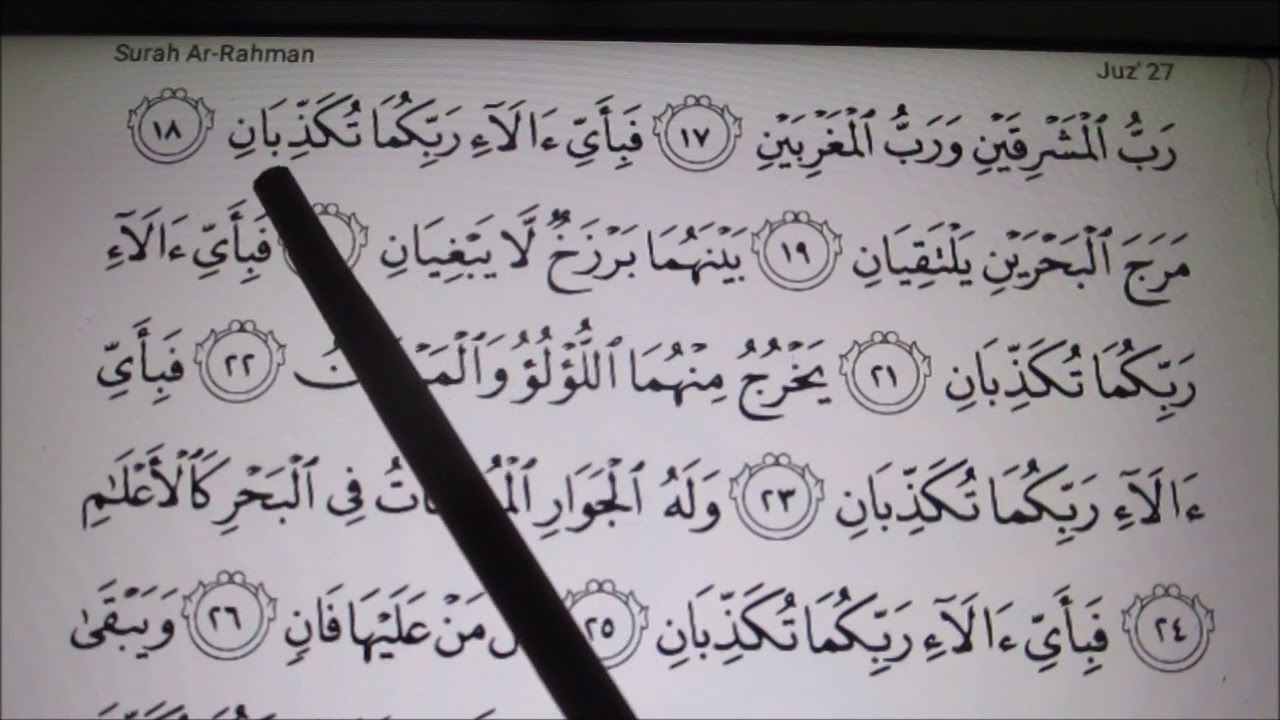 Surah Ar-Rahman
Juz' 27
رَبُّ ٱلْمَشْرِقَيْنِ وَرَبُّ ٱلْمَغْرِبَيْنِ ١٧ فَبِأَىِّ ءَالَآءِ رَبِّكُمَا تُكَذِّبَانِ ١٨
مَرَجَ ٱلْبَحْرَيْنِ يَلْتَقِيَانِ ١٩ بَيْنَهُمَا بَرْزَخٌ لَّا يَبْغِيَانِ فَبِأَىِّ ءَالَآءِ
رَبِّكُمَا تُكَذِّبَانِ ٢١ يَخْرُجُ مِنْهُمَا ٱللُّؤْلُؤُ ٢٢ فَبِأَىِّ
ءَالَآءِ رَبِّكُمَا تُكَذِّبَانِ ٢٣ وَلَهُ ٱلْجَوَارِ فِى ٱلْبَحْرِ كَٱلْأَعْلَٰمِ
٢٤ فَبِأَىِّ ءَالَآءِ رَبِّكُمَا تُكَذِّبَانِ ٢٥ مَنْ عَلَيْهَا فَانٍ ٢٦ وَيَبْقَىٰ